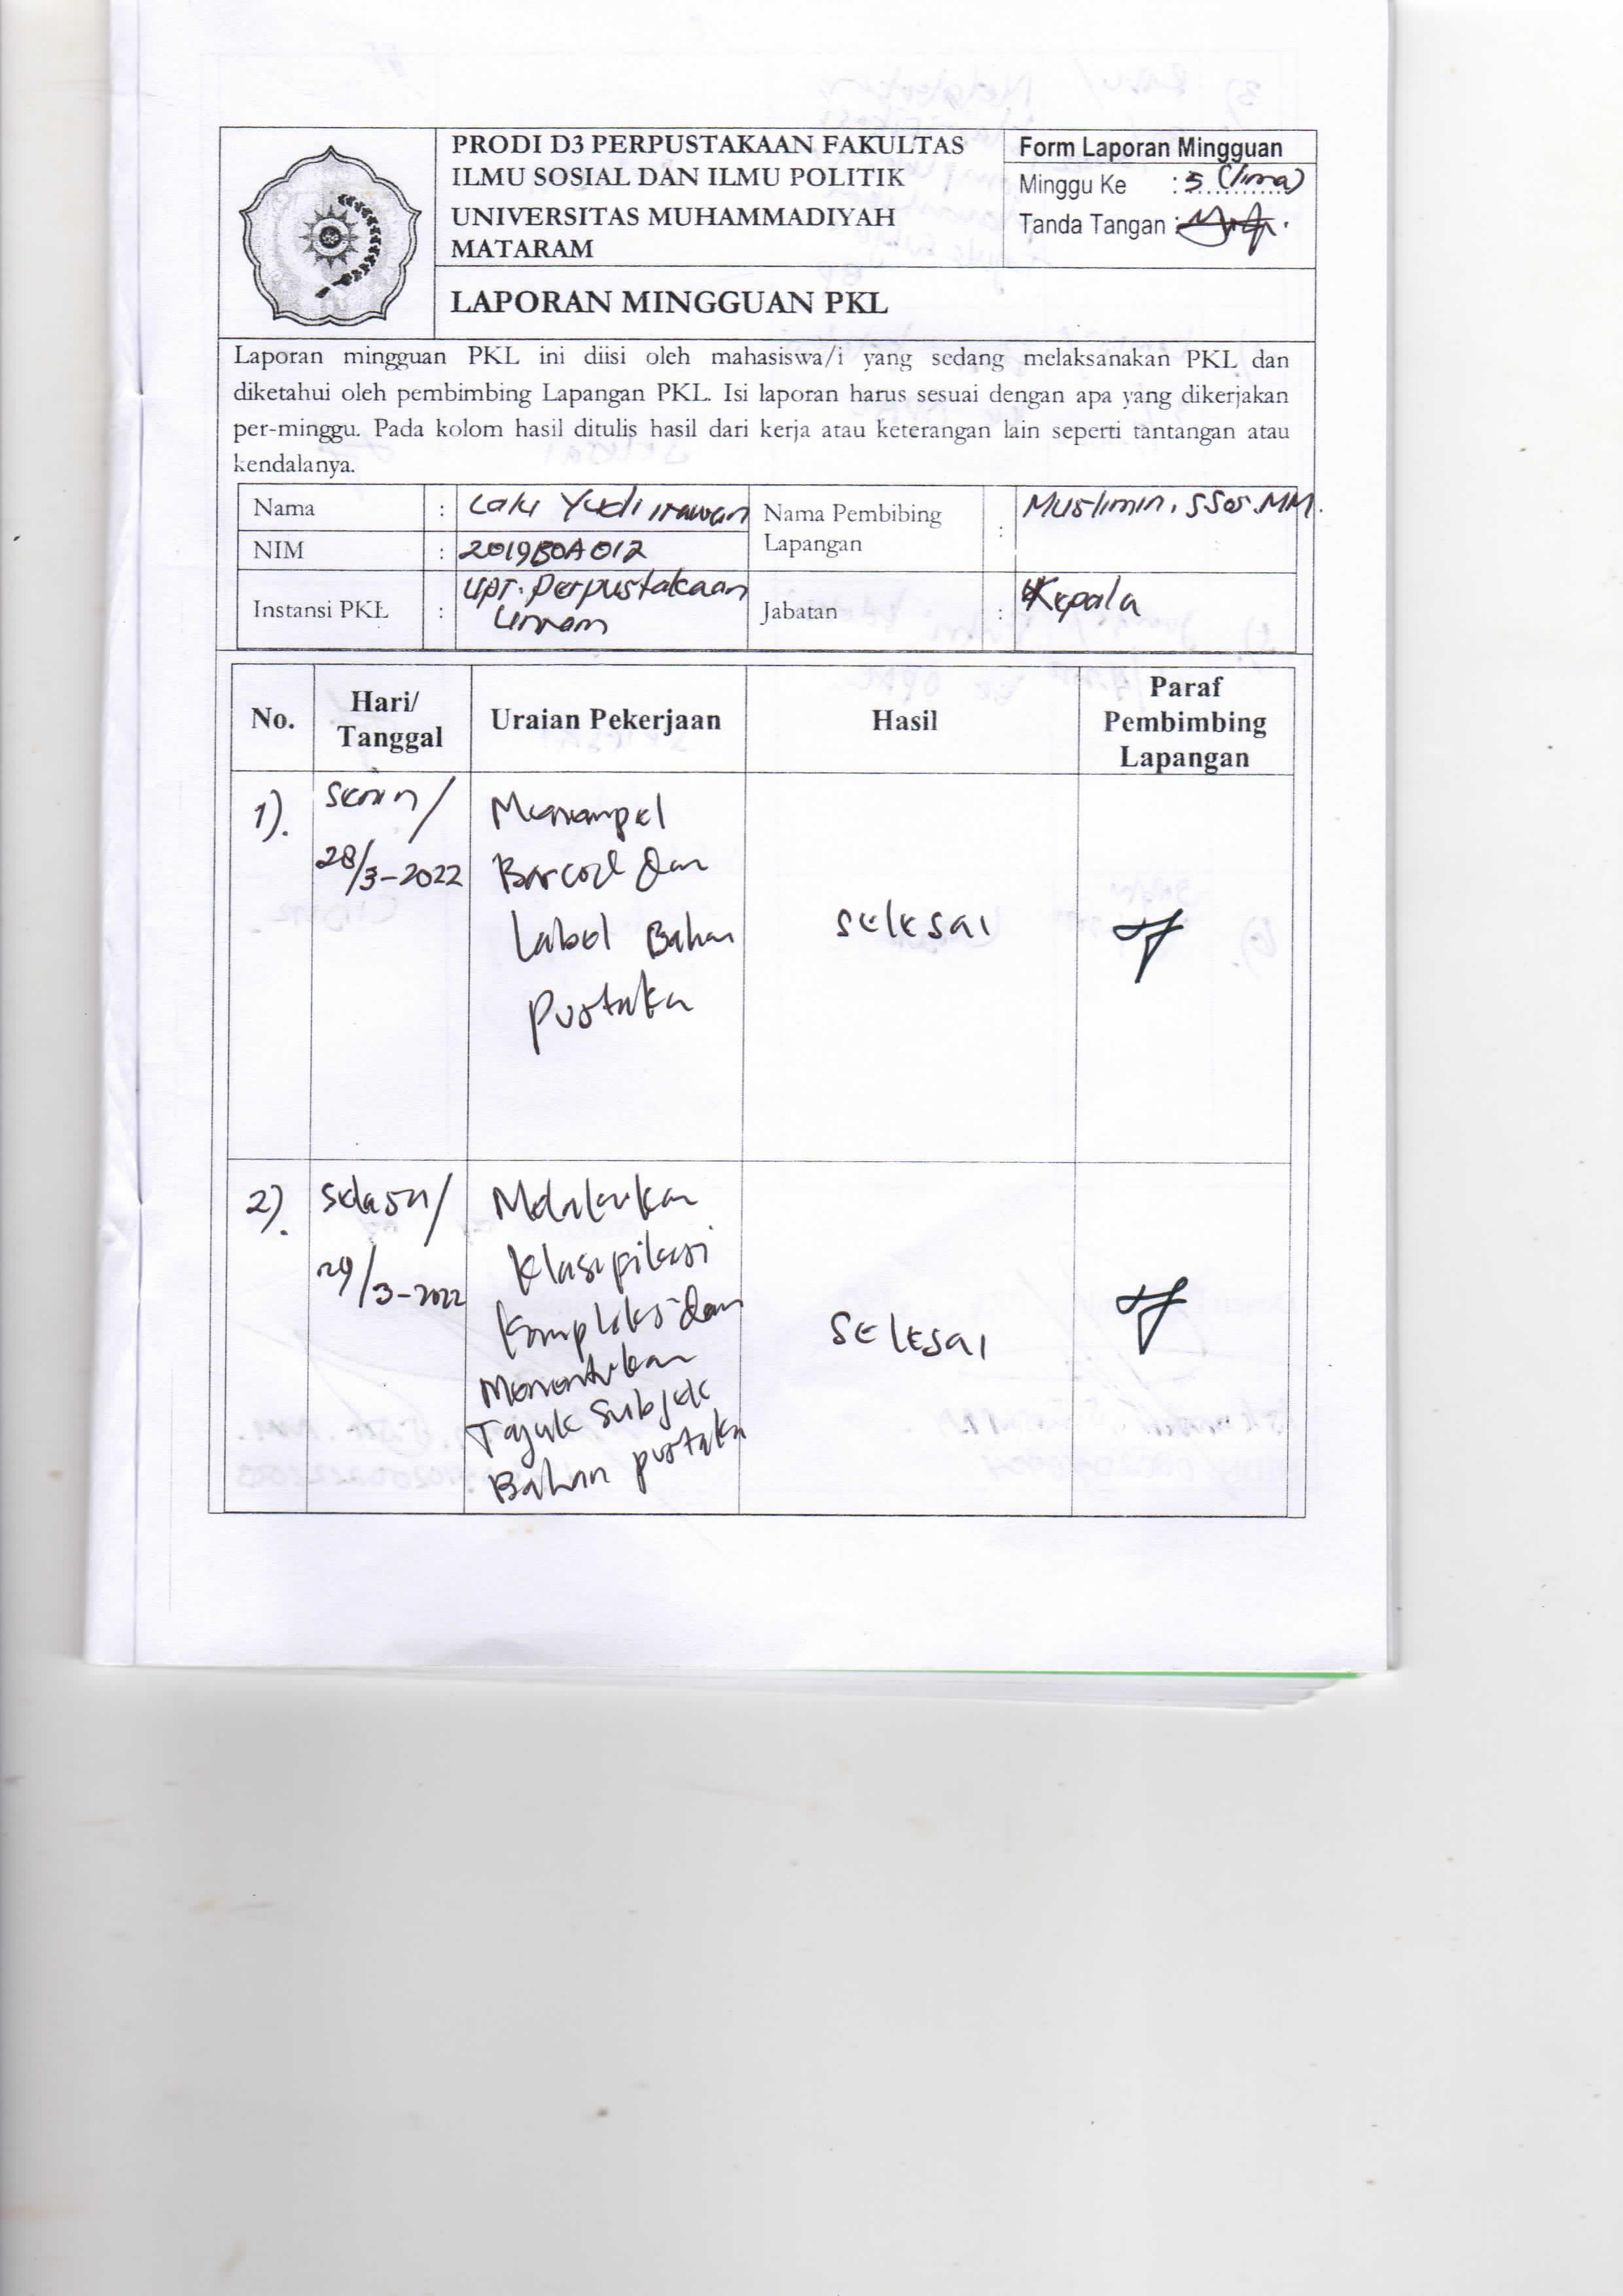 PRODI D3 PERPUSTAKAAN FAKULTAS
ILMU SOSIAL DAN ILMU POLITIK
UNIVERSITAS MUHAMMADIYAH
MATARAM
Form Laporan Mingguan
Minggu Ke : 5 (lima)
Tanda Tangan :
LAPORAN MINGGUAN PKL
Laporan mingguan PKL ini diisi oleh mahasiswa/i yang sedang melaksanakan PKL dan
diketahui oleh pembimbing Lapangan PKL. Isi laporan harus sesuai dengan apa yang dikerjakan
per-minggu. Pada kolom hasil ditulis hasil dari kerja atau keterangan lain seperti tantangan atau
kendalanya.
Nama : Lalu Yudi irawan
Nama Pembibing
Lapangan : Muslimin, S.Sos.MM.
NIM : 2019B0A012
Instansi PKL : UPT. Perpustakaan
Unram
Jabatan : Kepala
No.
Hari/
Tanggal
Uraian Pekerjaan
Hasil
Paraf
Pembimbing
Lapangan
1).
Senin/
28/3-2022
Menempel
Barcod dan
Label Bahan
pustaka
selesai
2).
Selasa/
29/3-2022
Melakukan
Klasipikasi
dan
Menentukan
Tajuk Subjek
Bahan pustaka
selesai